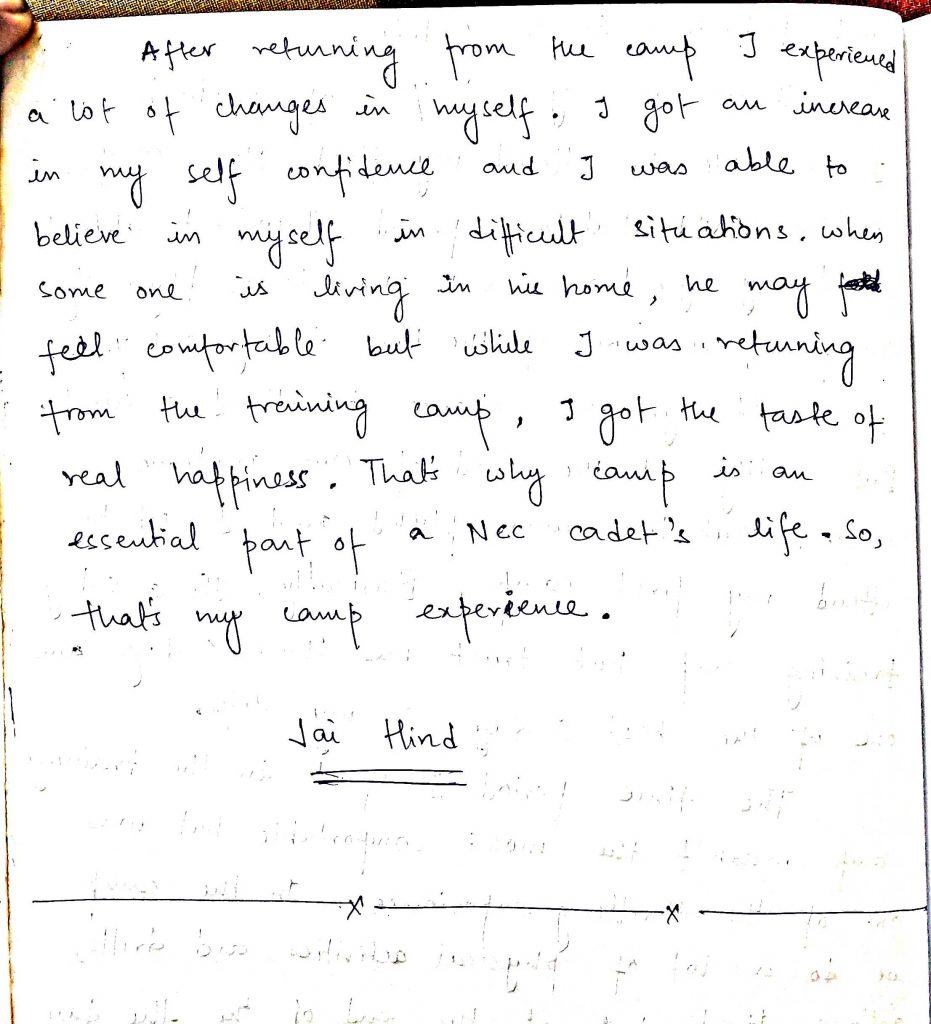 After returning from the camp I experienced
a lot of changes in myself. I got an increase
in my self confidence and I was able to
believe in myself in difficult situations. when
some one is living in his home, he may
feel comfortable but while I was returning
from the training camp, I got the taste of
real happiness. That's why camp is an
essential part of a Ncc cadet's life. So,
that's my camp experience.
Jai Hind